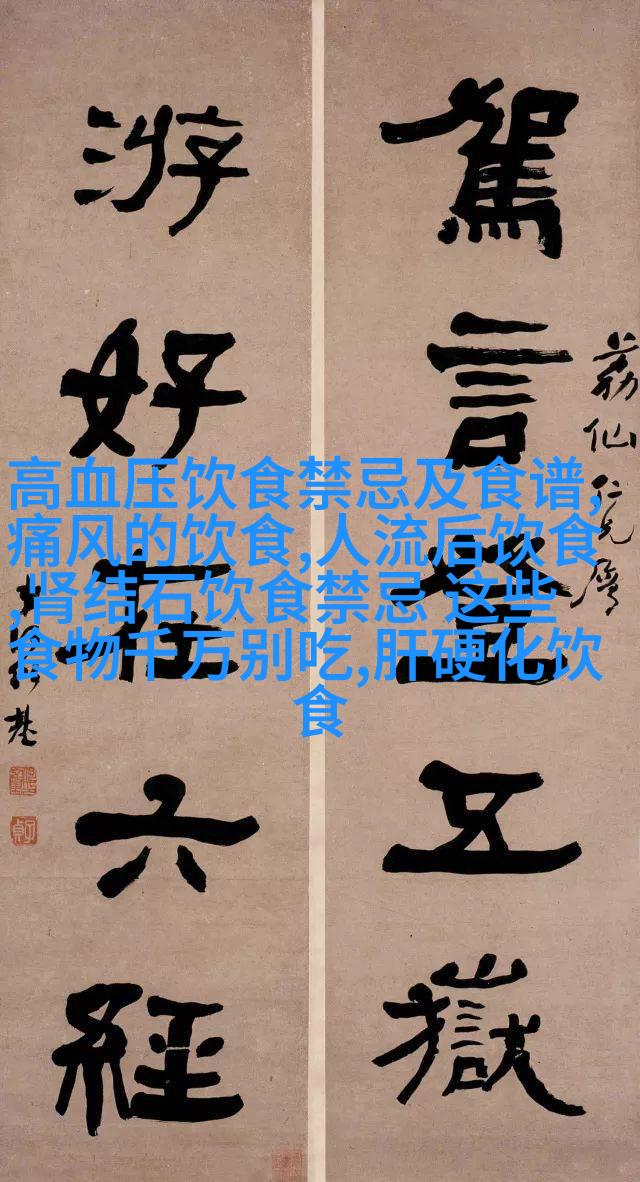 高血压饮食禁忌及食谱,
痛风的饮食,人流后饮食
,肾结石饮食禁忌 这些
食物千万别吃,肝硬化饮
食
荔仙仁兄屬
駕言登五嶽
游好在六經
子貞